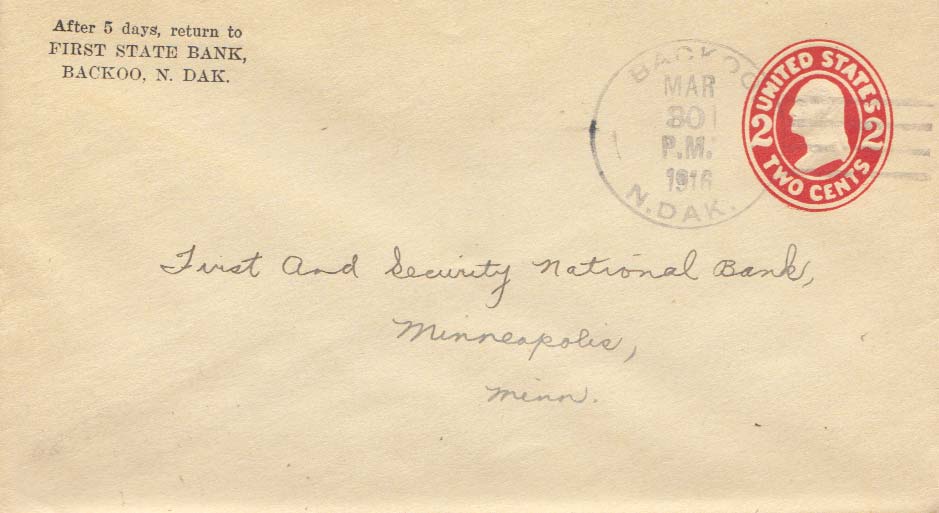 After 5 days, return to
FIRST STATE BANK,
BACKOO, N. DAK.
BACKOO
MAR
30
P.M.
1916
N. DAK.
UNITED STATES
2 2
TWO CENTS
First And Security National Bank,
Minneapolis,
Minn.